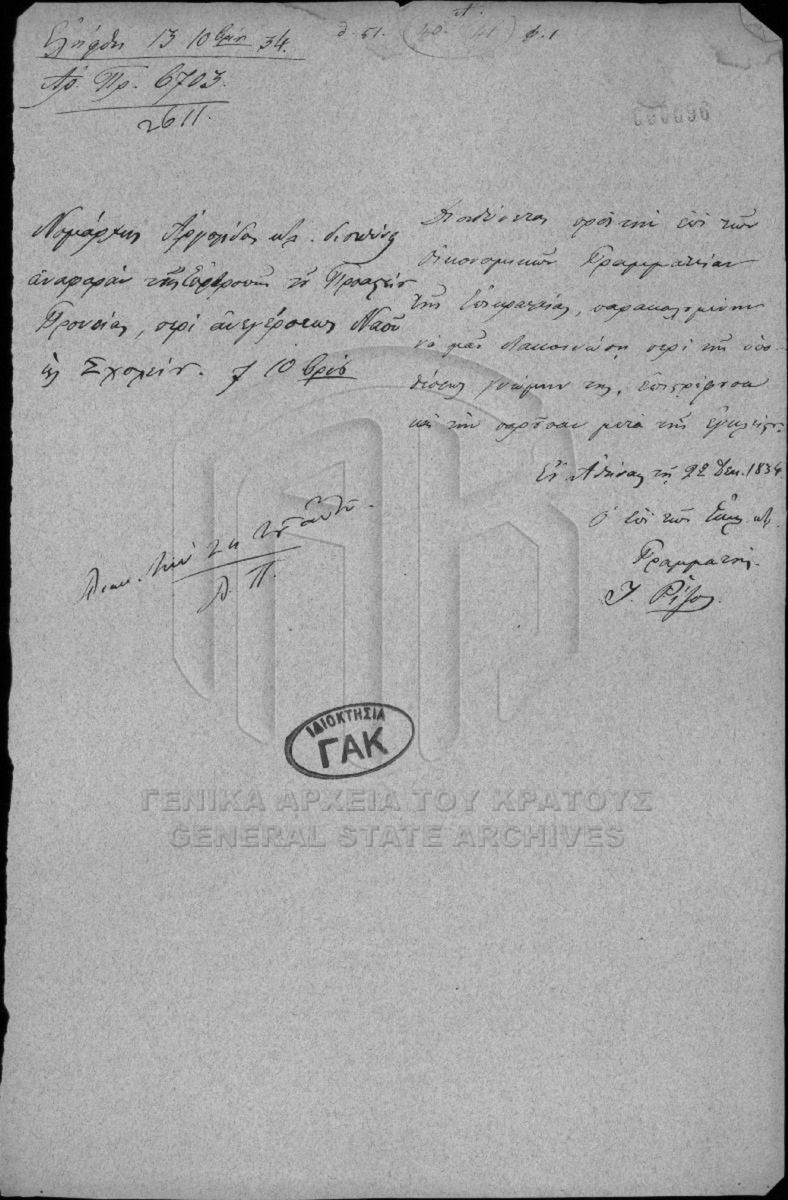 Ἐλήφθη 13 10βρίου 34.
Ἀρ. Πρ. 6703.
2611.
δ. 51. 40 41 φ. 1
000096
Νομάρχης Ἀργολίδος κτλ. διευθύνει
ἀναφορὰν τῆς Ἐπιτροπῆς τοῦ Προαστείου
Προνοίας, περὶ ἀνεγέρσεως Ναοῦ
καὶ Σχολείου. 10βρίου
Διευθύνεται πρὸς τὴν ἐπὶ τῶν
Οἰκονομικῶν Γραμματείαν
τῆς Ἐπικρατείας, παρακαλουμένην
νὰ μᾶς διακοινώσῃ περὶ τῆς ὑπο-
θέσεως γνώμην της, ἐπιστρέφουσα
καὶ τὴν παροῦσαν μετὰ τῆς ἐγκλείστου.
Ἐν Ἀθήναις τῇ 22 Δεκ. 1834
Ὁ ἐπὶ τῶν Ἐκκλ. κτλ.
Γραμματεύς.
Ἰ. Ρίζος.
ΙΔΙΟΚΤΗΣΙΑ
ΓΑΚ
ΓΕΝΙΚΑ ΑΡΧΕΙΑ ΤΟΥ ΚΡΑΤΟΥΣ
GENERAL STATE ARCHIVES